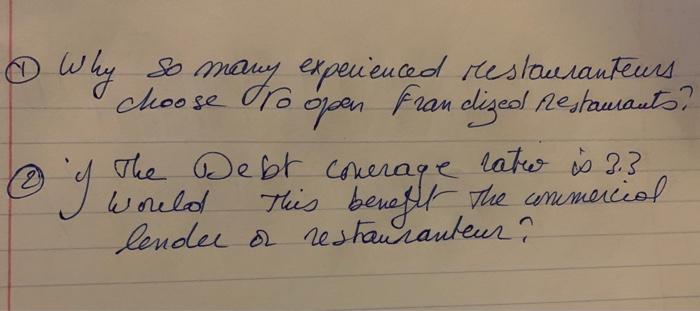 ① Why so many experienced restauranteurs
choose to open Frandized Restaurants?
② if The Debt coverage ratio is 3.3
would This benefit The commercial
lender or restauranteur?